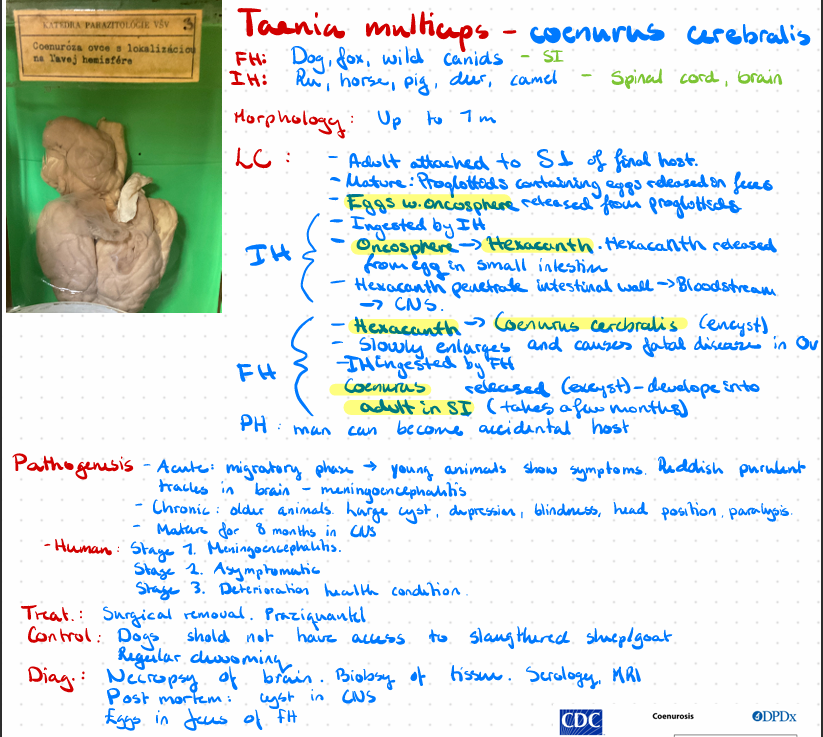 KATEDRA PARAZITOLÓGIE VŠV 3
Coenuróza ovce s lokalizáciou
na ľavej hemisfére
Taenia multicups - coenurus cerebralis
FH: Dog, fox, wild canids - SI
IH: Ru, horse, pig, deer, camel - Spinal cord, brain
Morphology: Up to 1 m
LC: - Adult attached to SI of final host.
- Mature: Proglottids containing eggs released in feces
- Eggs w. oncosphere released from proglottids
IH
- Ingested by IH
- Oncosphere → Hexacanth. Hexacanth released
from egg in small intestin
- Hexacanth penetrate intestinal wall → Bloodstream
→ CNS.
FH
- Hexacanth → Coenurus cerebralis (encyst)
- Slowly enlarges and causes fatal disease in Ov
- IH ingested by FH
Coenurus released (excyst) - develope into
adult in SI (takes a few months)
PH: man can become accidental host
Pathogenesis - Acute: migratory phase → young animals show symptoms. Reddish purulent
tracks in brain - meningoencephalitis
- Chronic: older animals. Large cyst, depression, blindness, head position, paralysis.
- Mature for 8 months in CNS
- Human: Stage 1. Meningoencephalitis.
Stage 2. Asymptomatic
Stage 3. Deterioration health condition.
Treat.: Surgical removal. Praziquantel
Control: Dogs shold not have access to slaugthered sheep/goat
Regular deworming
Diag.: Necropsy of brain. Biobsy of tissue. Serology, MRI
Post mortem: cyst in CNS
Eggs in feces of FH
CDC Coenurosis DPDx